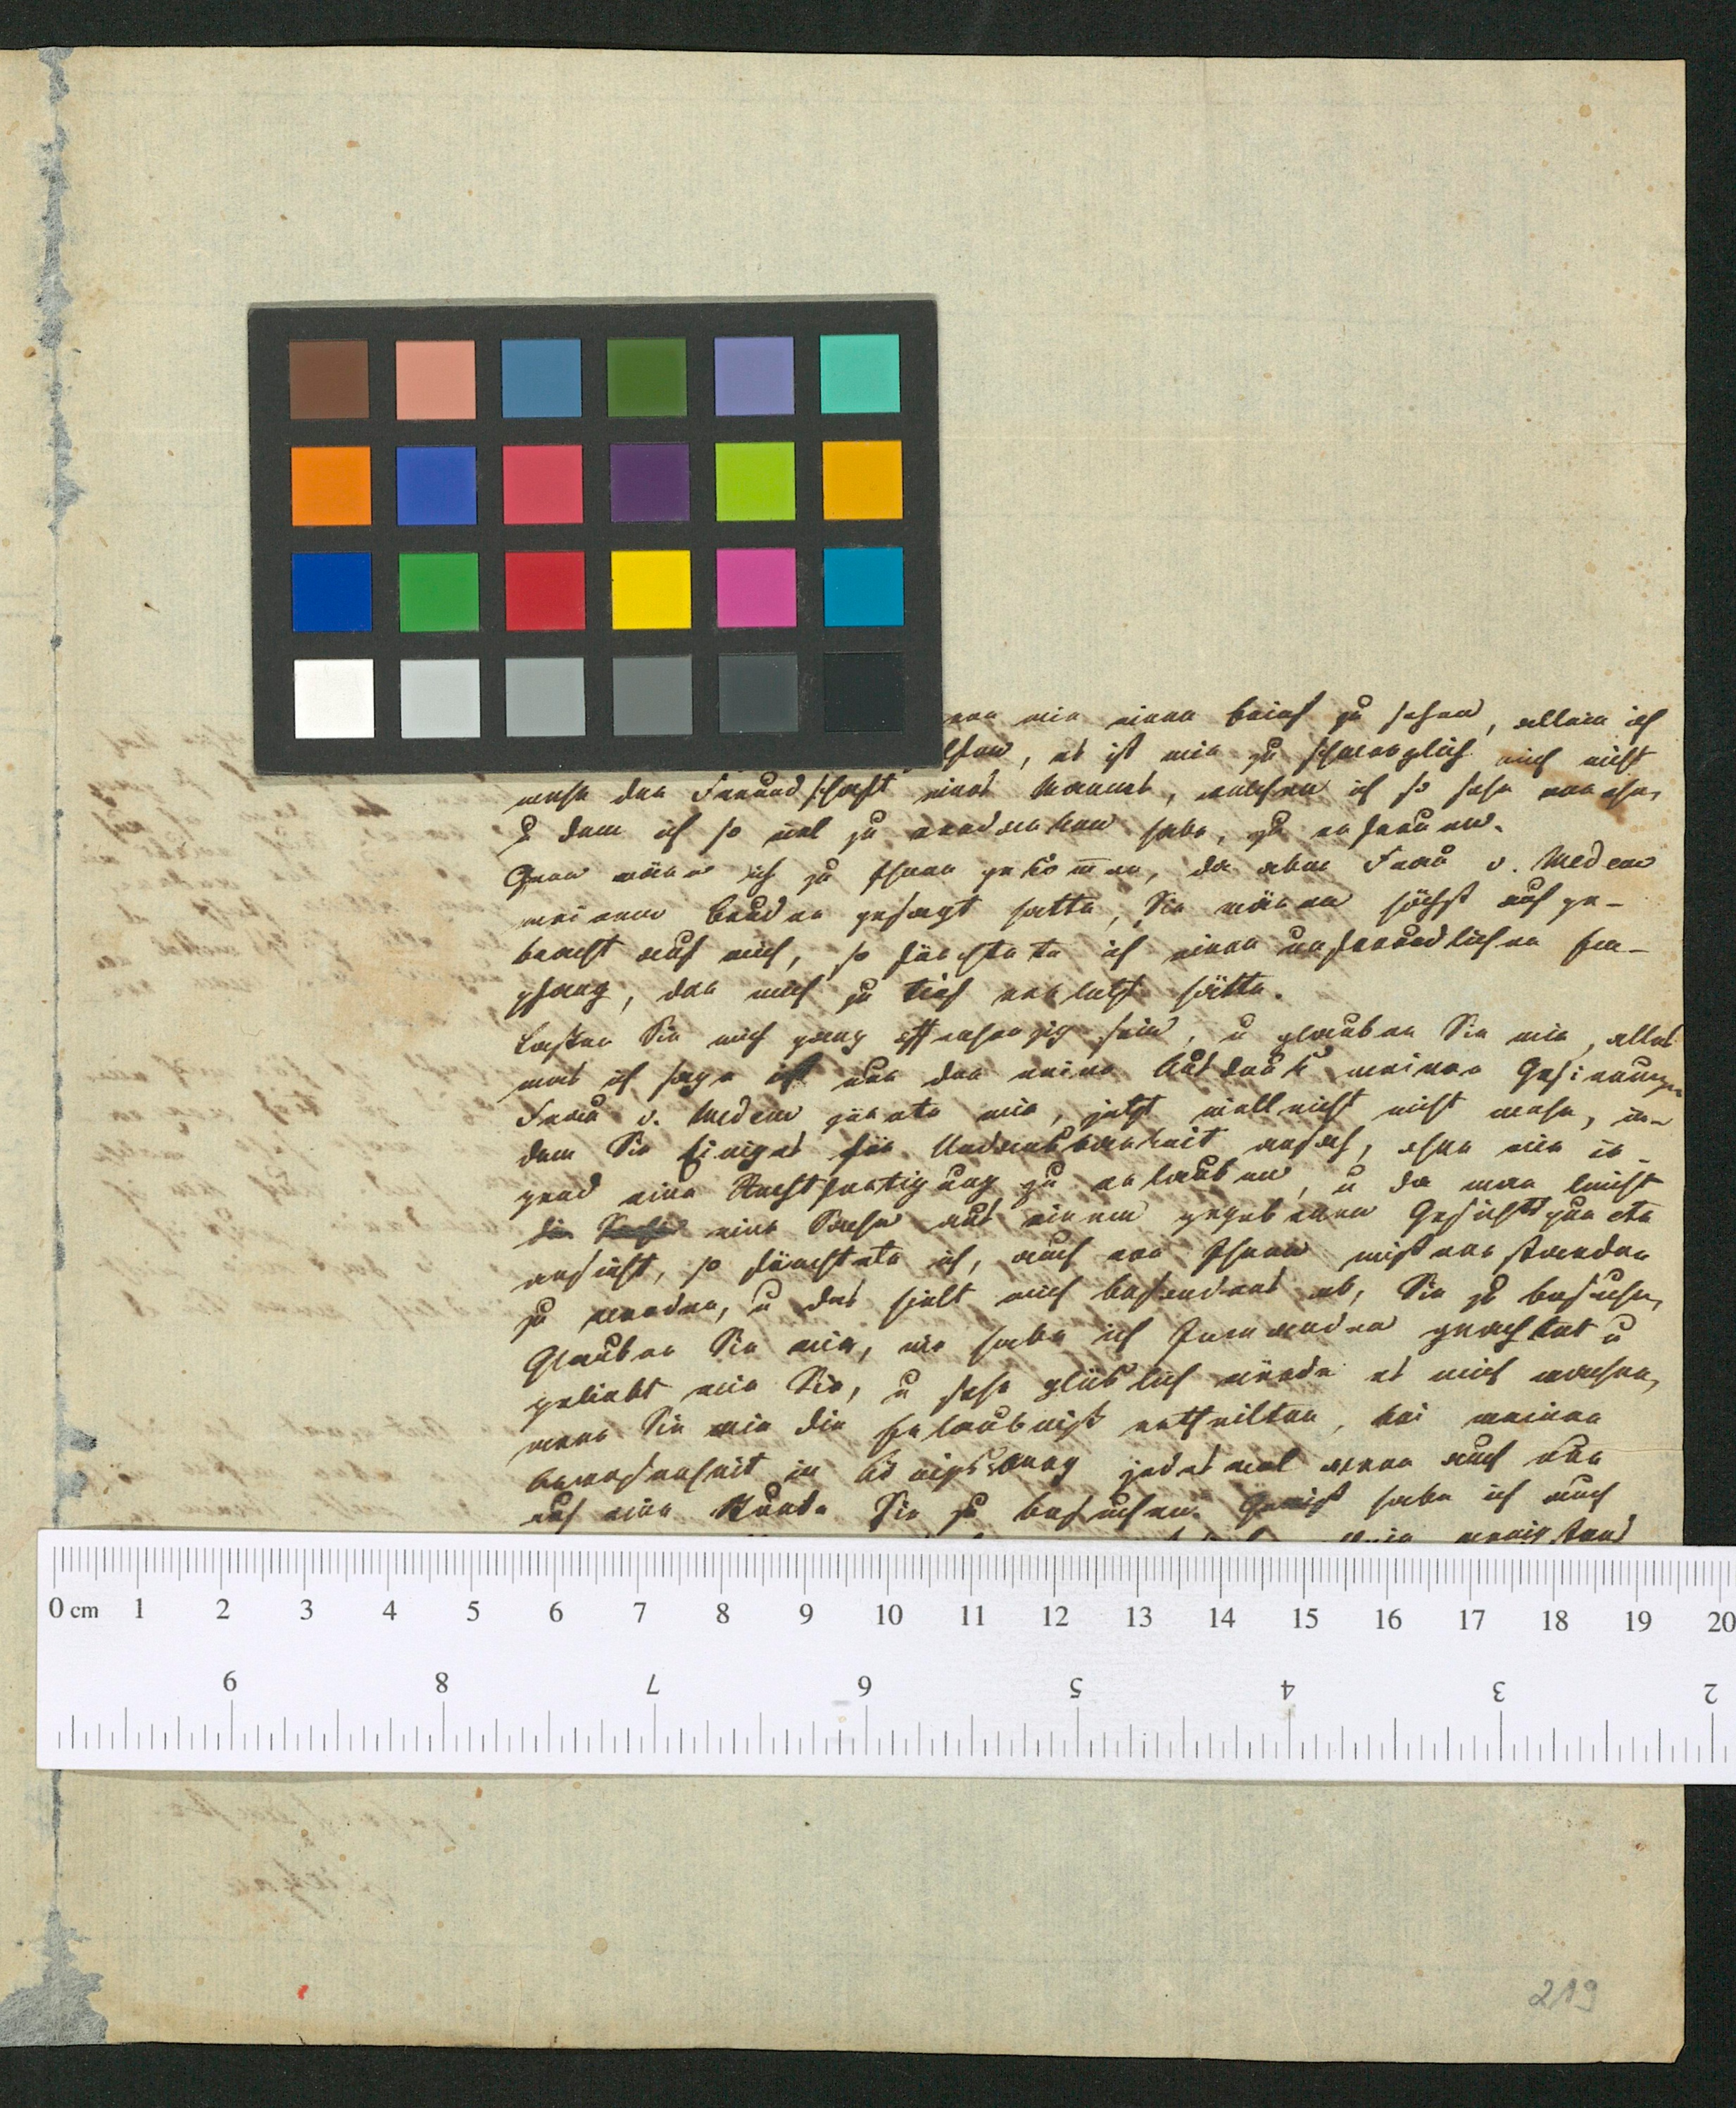 von mir einen Brief zu sehen, allein ich
, es ist mir zu schmerzlich mich nicht
mehr der Freundschaft eines Mannes, welchen ich so sehr verehre,
u dem ich so viel zu verdanken habe, zu erfreuen.
Gern wäre ich zu Ihnen gekom̅en, da aber Frau v. Medem
meinem Bruder gesagt hatte, Sie wären höchst aufge-
bracht auf mich, so fürchtete ich einen unfreundlichen Em-
pfang, der mich zu tief verletzt hätte.
Laßen Sie mich ganz offenherzig sein, u glauben Sie mir, alles
was ich sage ist nur der reine Ausdruck meiner Gesinnungen
Frau v. Medem zürnte mir, jetzt vielleicht nicht mehr, in-
dem Sie Einiges für Undankbarkeit ansah, ohne mir ir-
gend eine Rechtfertigung zu erlauben, u da man leicht
die eine Sache aus einem gegebenen Gesichtspuncte
ansieht, so fürchtete ich, auch von Ihnen mißverstanden
zu werden, u das hielt mich besonders ab, Sie zu besuchen,
Glauben Sie mir, nie habe ich Jemanden geachtet u
geliebt wie Sie, u sehr glücklich würde es mich machen,
wenn Sie mir die Erlaubniß ertheilten, bei meiner
Anwesenheit in Königsberg jedesmal wenn auch nur
auf eine Stunde Sie zu besuchen. Gewiß habe ich auch
0 cm 1 2 3 4 5 6 7 8 9 10 11 12 13 14 15 16 17 18 19 20
9 8 7 6 5 4 3 2
219